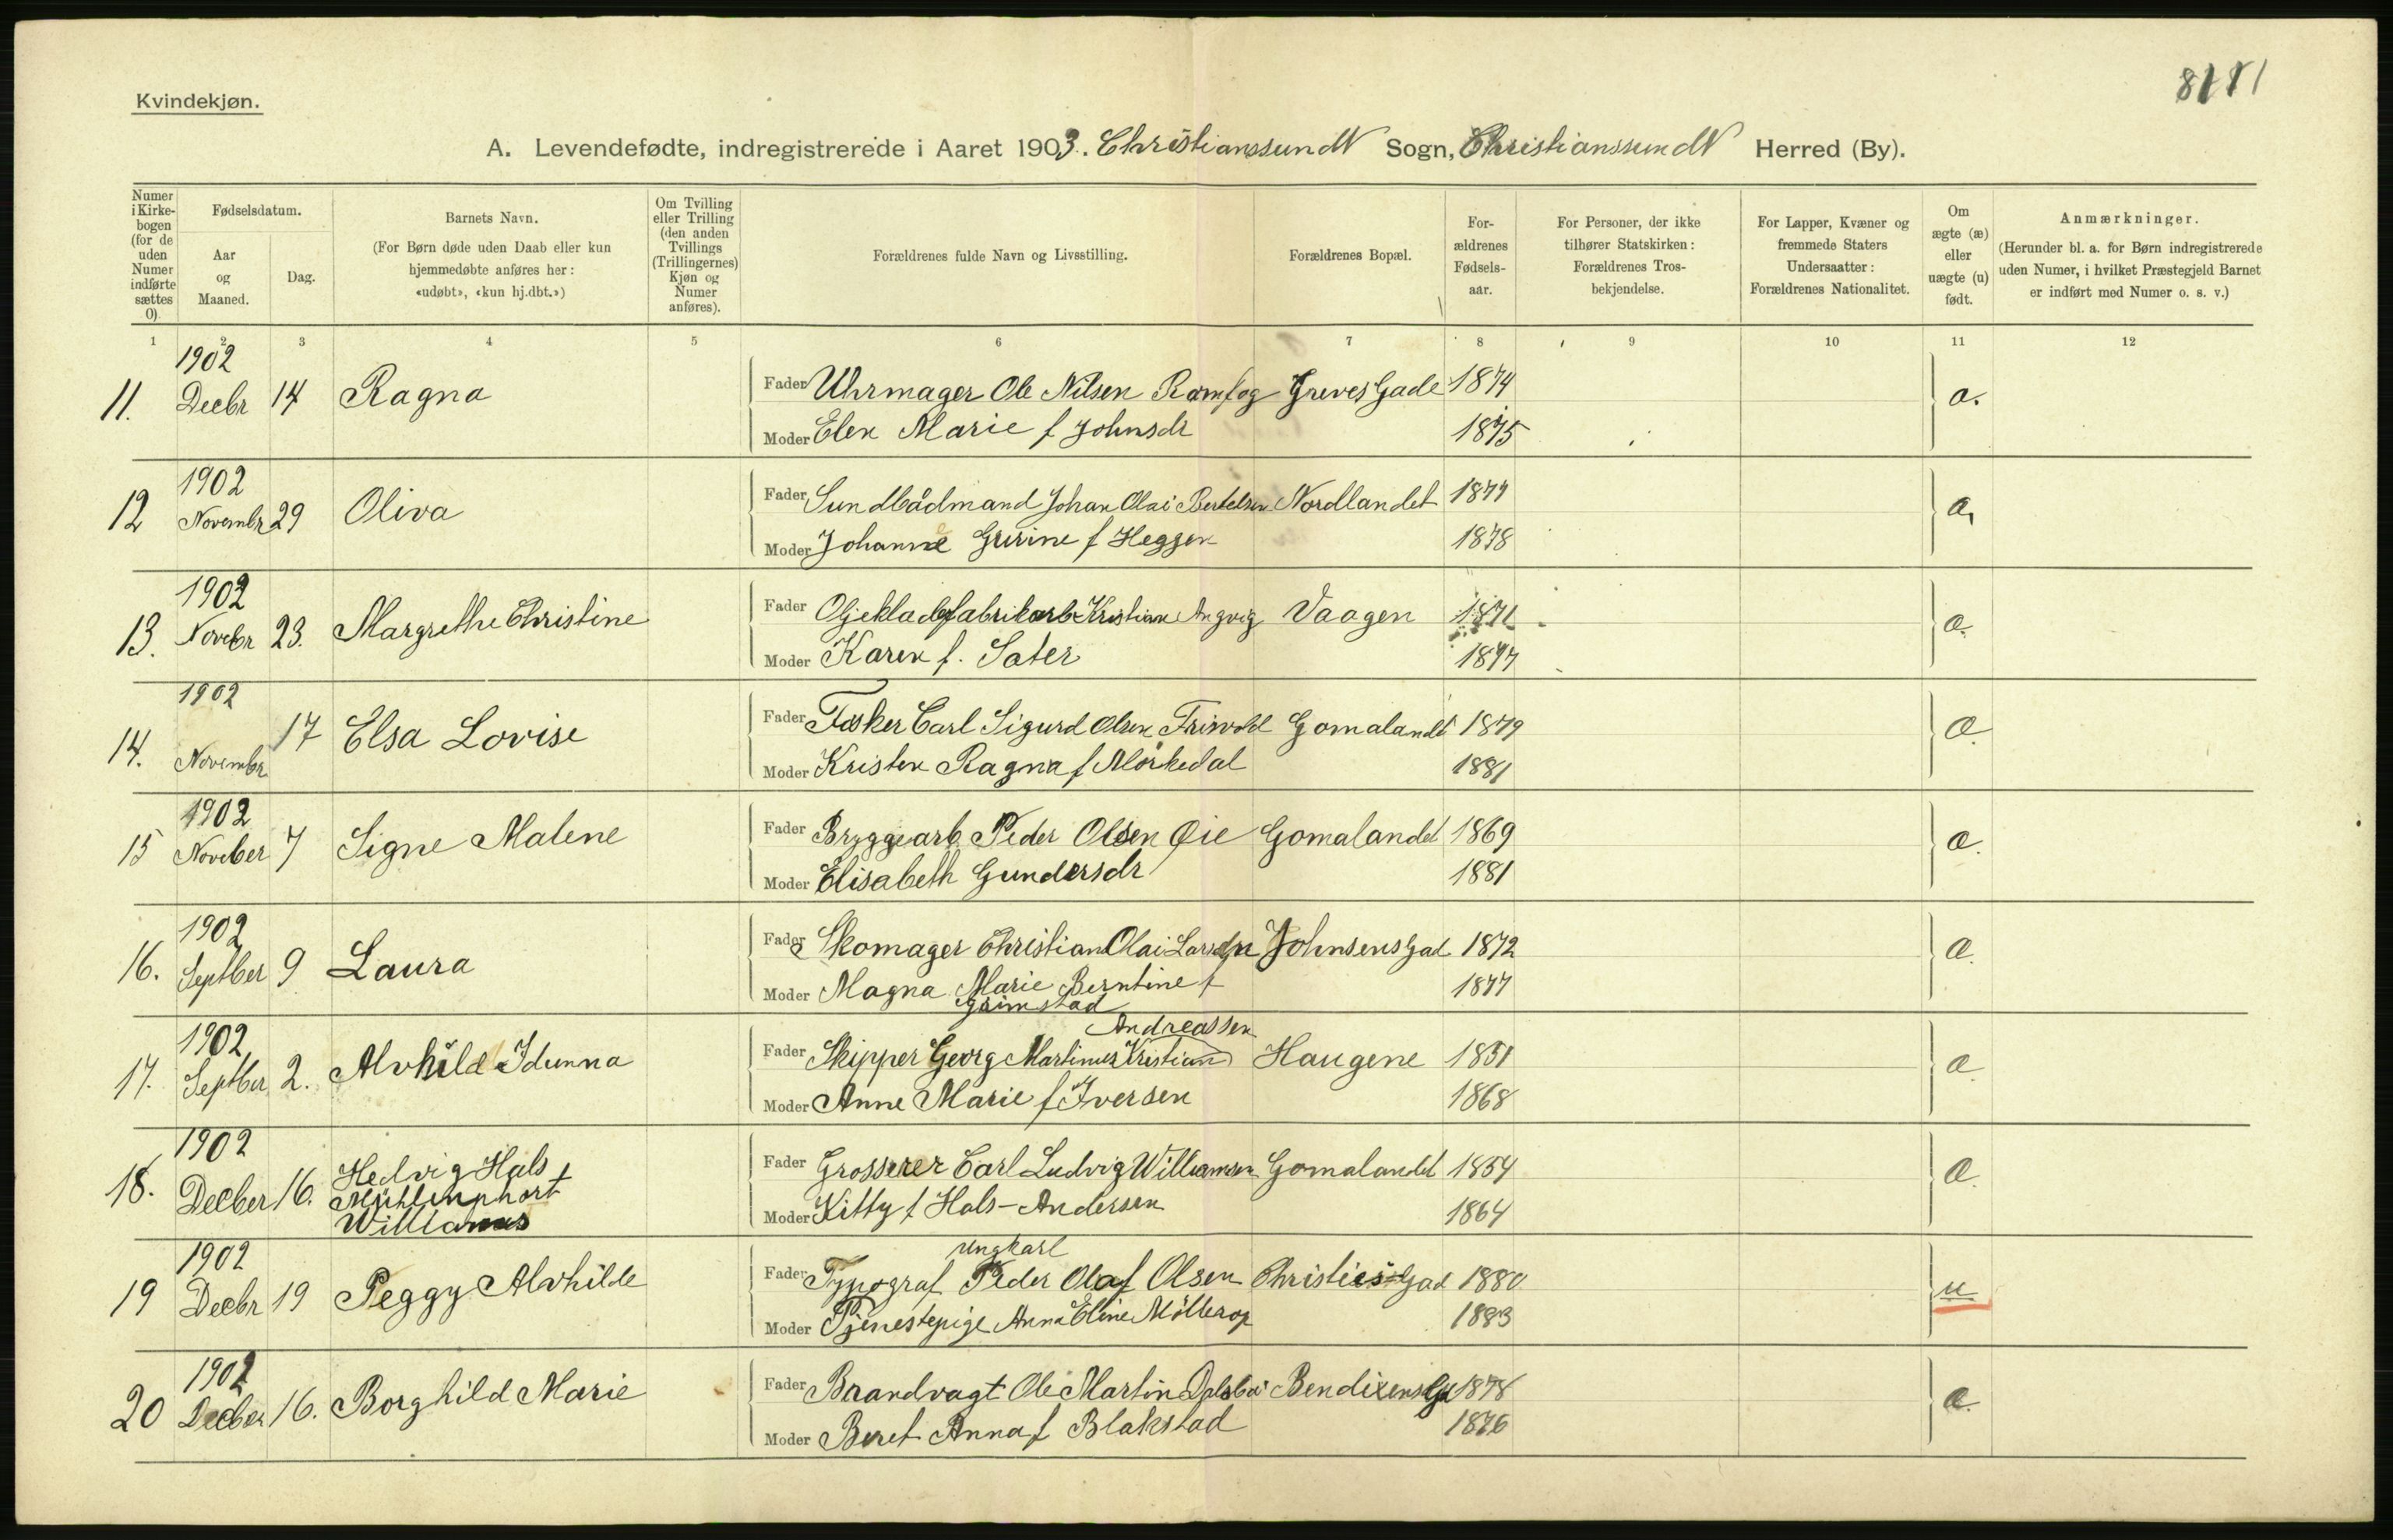 Kvindekjøn.
A. Levendefødte, indregistrerede i Aaret 1903. Christianssund N Sogn, Christianssund N Herred (By).
Numer i Kirke- bogen (for de uden Numer indførte sættes 0)
Fødselsdatum.
Aar og Maaned.
Dag.
Barnets Navn.
(For Børn døde uden Daab eller kun hjemmedøbte anføres her: «udøbt», «kun hj.dbt.»)
Om Tvilling eller Trilling (den anden Tvillings (Trillingernes) Kjøn og Numer anføres).
Forældrenes fulde Navn og Livsstilling.
Forældrenes Bopæl.
For- ældrenes Fødsels- aar.
For Personer, der ikke tilhører Statskirken: Forældrenes Tros- bekjendelse.
For Lapper, Kvæner og fremmede Staters Undersaatter: Forældrenes Nationalitet.
Om ægte (æ) eller uægte (u) født.
Anmærkninger.
(Herunder bl. a. for Børn indregistrerede uden Numer, i hvilket Præstegjeld Barnet er indført med Numer o. s. v.)
1 2 3 4 5 6 7 8 9 10 11 12
1902
11. Decbr 14 Ragna Fader Uhrmager Ole Nilsen Greves Gade 1874 æ.
Moder Elen Marie f Johnsdr 1875
1902
12 Novembr 29 Oliva Fader Sundbådmand Johan Olai Bertelsen Nordlandet 1877 æ,
Moder Johanne Gurine f Heggen 1878
1902
13. Novebr 23. Margrethe Christine Fader Oljeklædefabrikarb Kristian Angvig Vaagen 1871 æ.
Moder Karen f. Sater 1877
1902
14. Novembr 17 Elsa Lovise Fader Fisker Carl Sigurd Olsen Gomalandt 1879 æ.
Moder Kristen Ragna f Mörkedal 1881
1902
15 Noveber 7 Signe Malene Fader Bryggearb Peder Olsen Øie Gomalandet 1869 æ.
Moder Elisabeth Gundersdr 1881
1902
16. Septber 9 Laura Fader Skomager Christian Olai Larsen Johnsens Gad 1872 æ.
Moder Magna Marie Berntine f 1877
Grimstad
1902 Andreassen
17. Septber 2. Alvhild Idunna Fader Skipper Georg Martinus Kristian Haugene 1851 æ.
Moder Anne Marie f Iversen 1868
1902
18. Decber 16. Hedvig Hals Fader Grosserer Carl Ludvig Williamsen Gomalandet 1854 æ.
Mühlenphort
Moder Kitty f Hals-Andersen 1864
1902 ungkarl
19 Decbr 19 Peggy Alvhilde Fader Typograf Peder Olaf Olsen Christies Gad 1880 u
Moder Tjenestepige Anna Eline Möllerop 1883
1902
20 Decber 16. Borghild Marie Fader Brandvagt Ole Martin Bendixens Gd 1878 æ.
Moder Beret Anna f Blakstad 1876